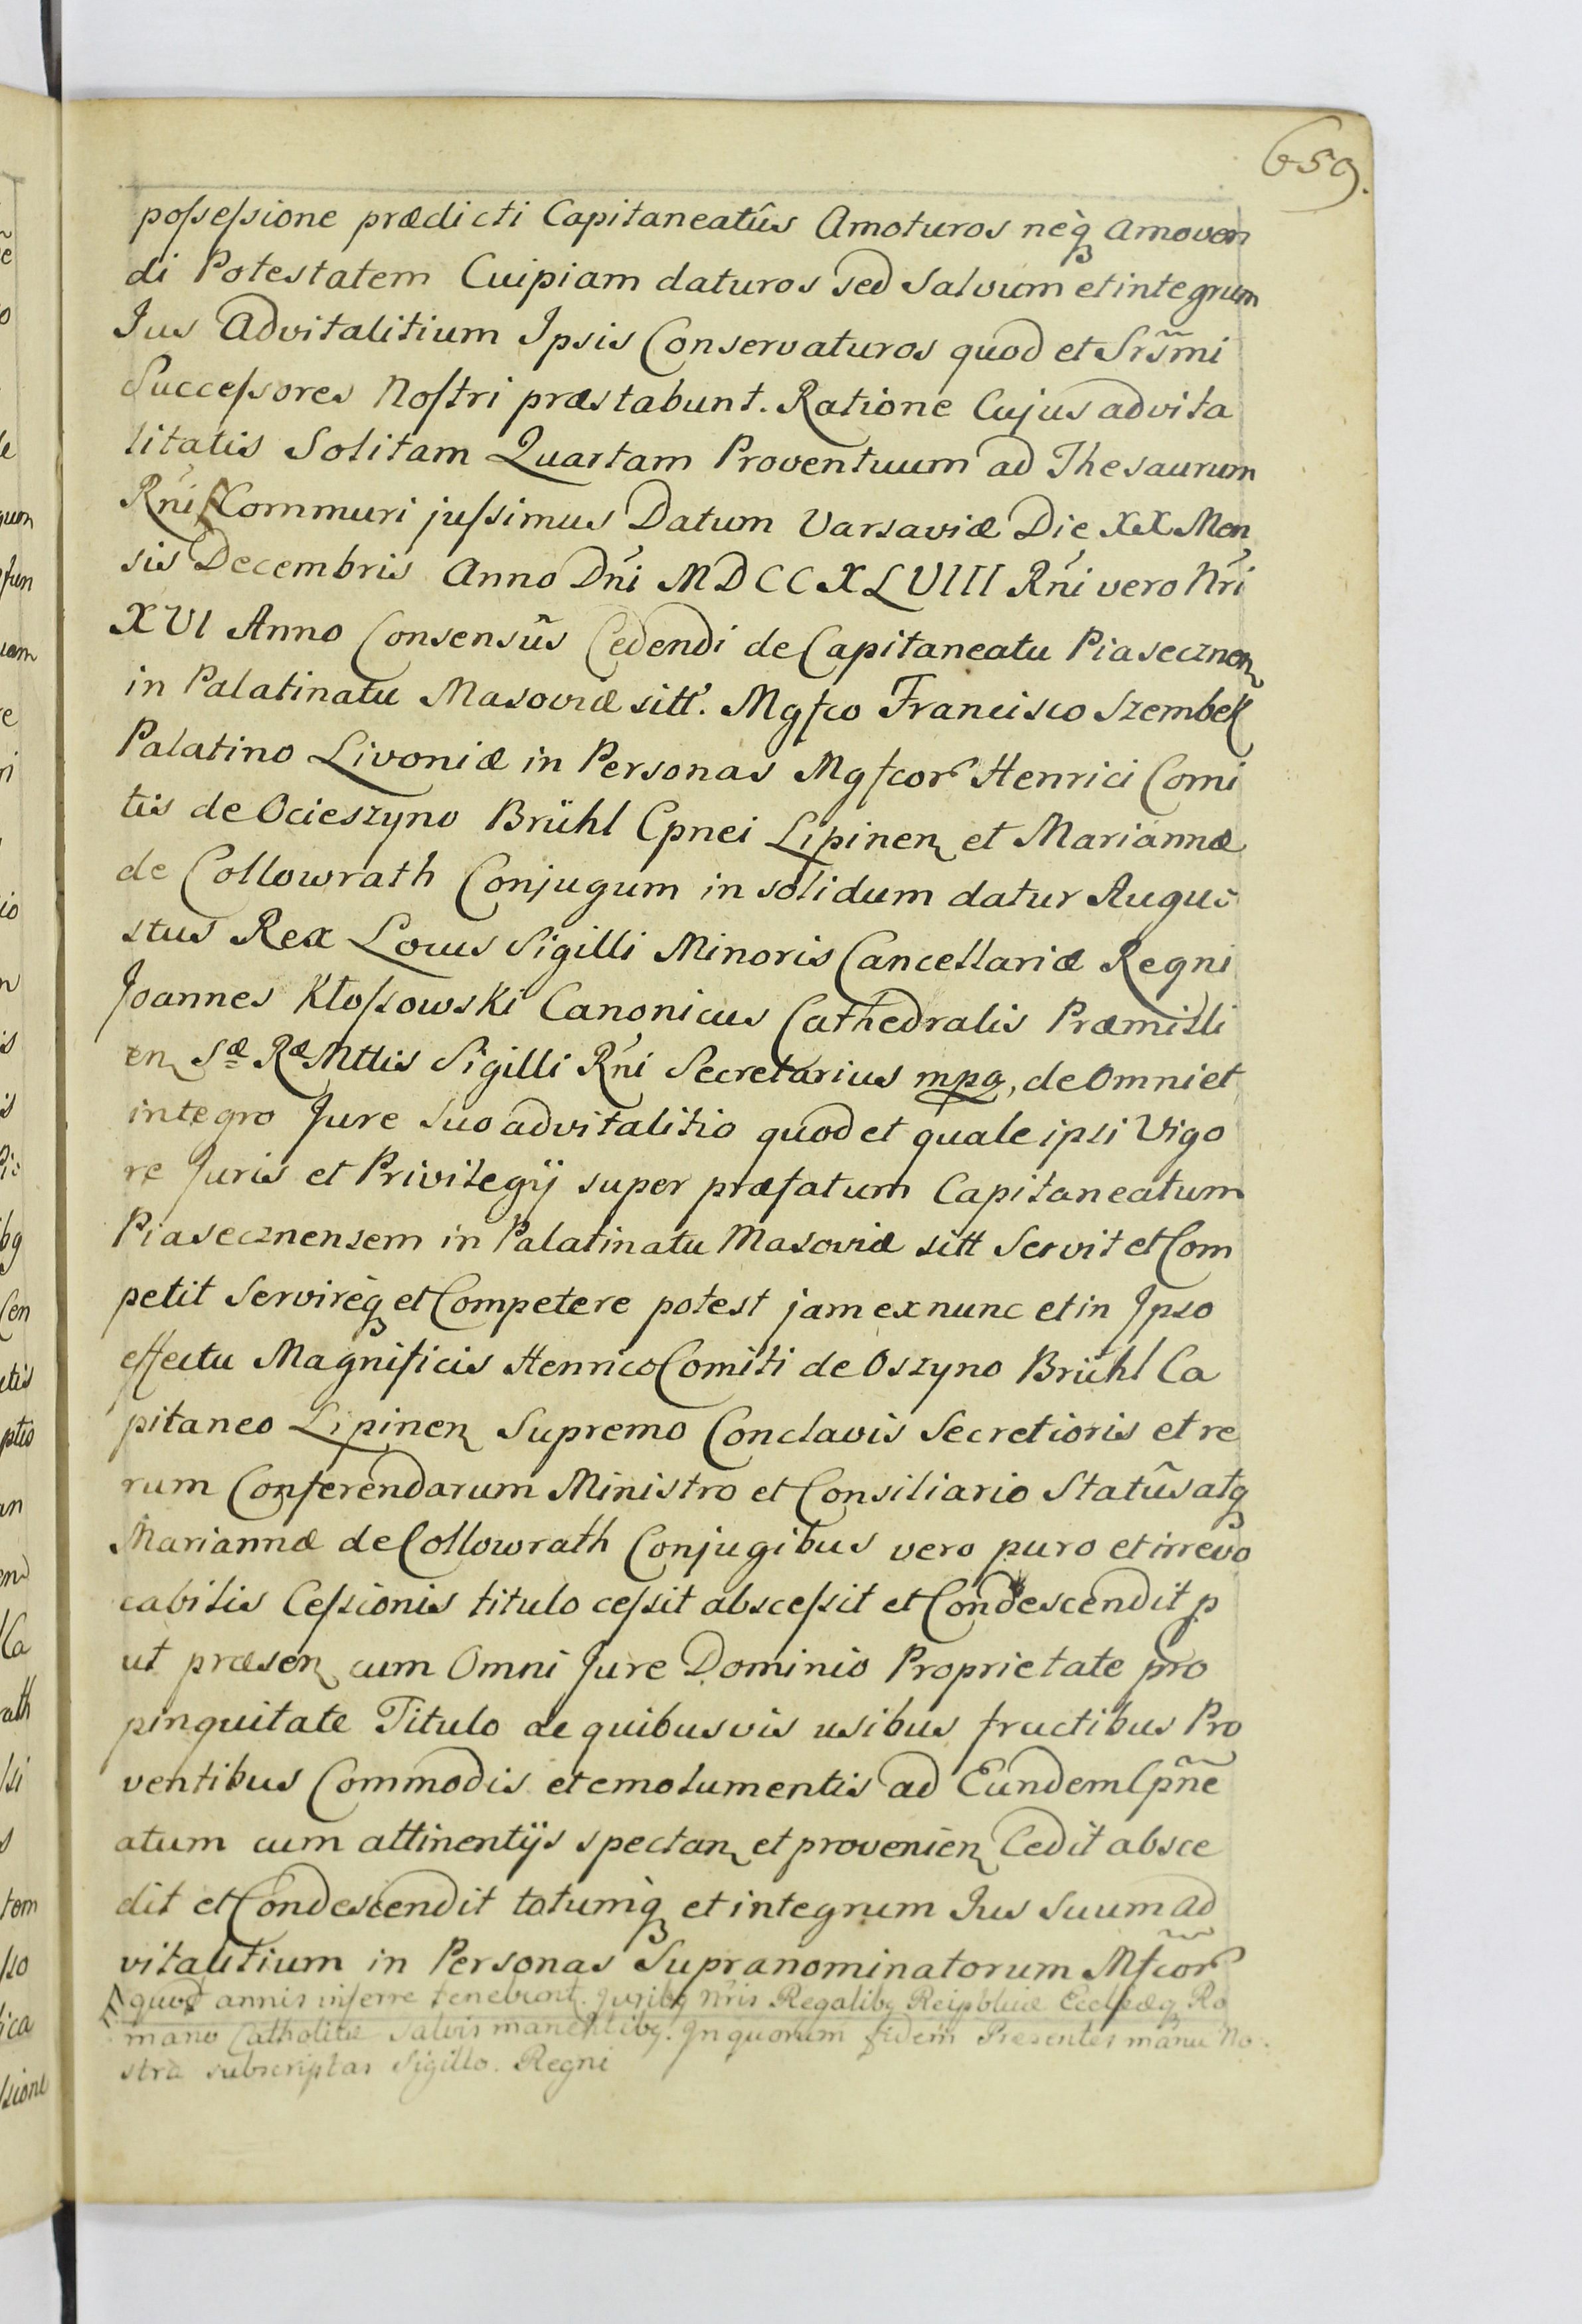 659.
possessione prædicti Capitaneatûs Amoturos neq̀ꝫ amoven
di Potestatem Cuipiam daturos sed Salvum et integrum
Jus Advitalitium Ipsis Conservaturos quod et Srs̃mi
Successores Nostri præstabunt. Ratione Cujus advita
litatis Solitam Quartam Proventuum ad Thesaurum
Rńi Commuri jussimus Datum Varsaviæ Die XX Men
sis Decembris Anno Dńi MDCCXLVIII Rńi vero Nŕi
XVI Anno Consensûs Cedendi de Capitaneatu Piasecznen
in Palatinatu Masoviæ sitt. Mgfco Francisco Szembek
Palatino Livoniæ in Personas Mgfcor Henrici Comi
tis de Ocieszyno Brühl Cpnei Lipinen et Mariannæ
de Collowrath Conjugum in solidum datur Augus
stus Rex Locus Sigilli Minoris Cancellariæ Regni
Joannes Kłossowski Canonicus Cathedralis Præmisli
en Sæ Ræ Mttis Sigilli Rńi Secretarius mpa, de Omni et
integro Jure Suo advitalitio quod et quale ipsi Vigo
re Juris et Privilegij super præfatum Capitaneatum
Piasecznensem in Palatinatu Masoviæ sitt Servit et Com
petit Servireq̀ꝫ et Competere potest jam ex nunc et in Ipso
effectu Magnificis Henrico Comiti de Oszyno Brühl Ca
pitaneo Lipinen Supremo Conclavis Secretioris et re
rum Conferendarum Ministro et Consiliario Statûs atqꝫ
Mariannæ de Collowrath Conjugibus vero puro et irrevo
cabilis Cessionis titulo cessit abscessit et Condescendit p
ut præsen cum Omni Jure Dominio Proprietate pro
pinquitate Titulo de quibusvis usibus fructibus Pro
ventibus Commodis et emolumentis ad Eundem Cpñe
atum cum attinentijs spectan et provenien Cedit absce
dit et Condescendit totumq̀ꝫ et integrum Jus Suum ad
vitalitium in Personas Supranominatorum Mfcor̃
quot annis inferre tenebunt. Juribq Nris Regalibq Reipblicæ Eccleæq Ro
mano Catholicæ Salvis manentibq. In quorum fidem Presentes manu No
stra subscriptas Sigillo. Regni